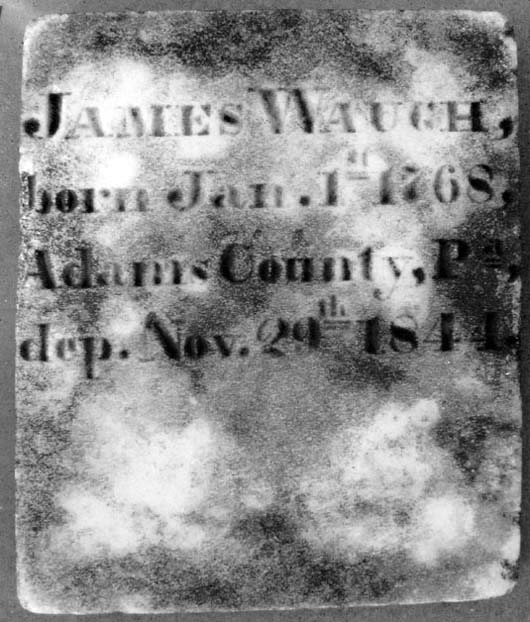 JAMES WAUGH,
born Jan. 1st 1768,
Adams County, Pa,
dep. Nov. 29th 1844.